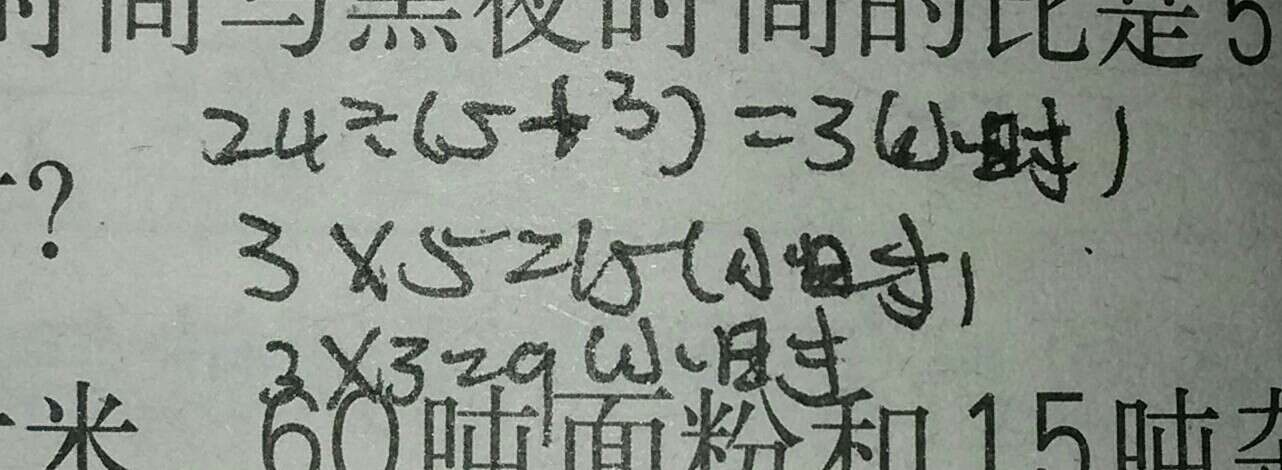 时间与黑夜时间的比是5
24÷(5+3)=3(小时)
?
3×5=15(小时)
3×3=9(小时
米 60吨面粉和15吨